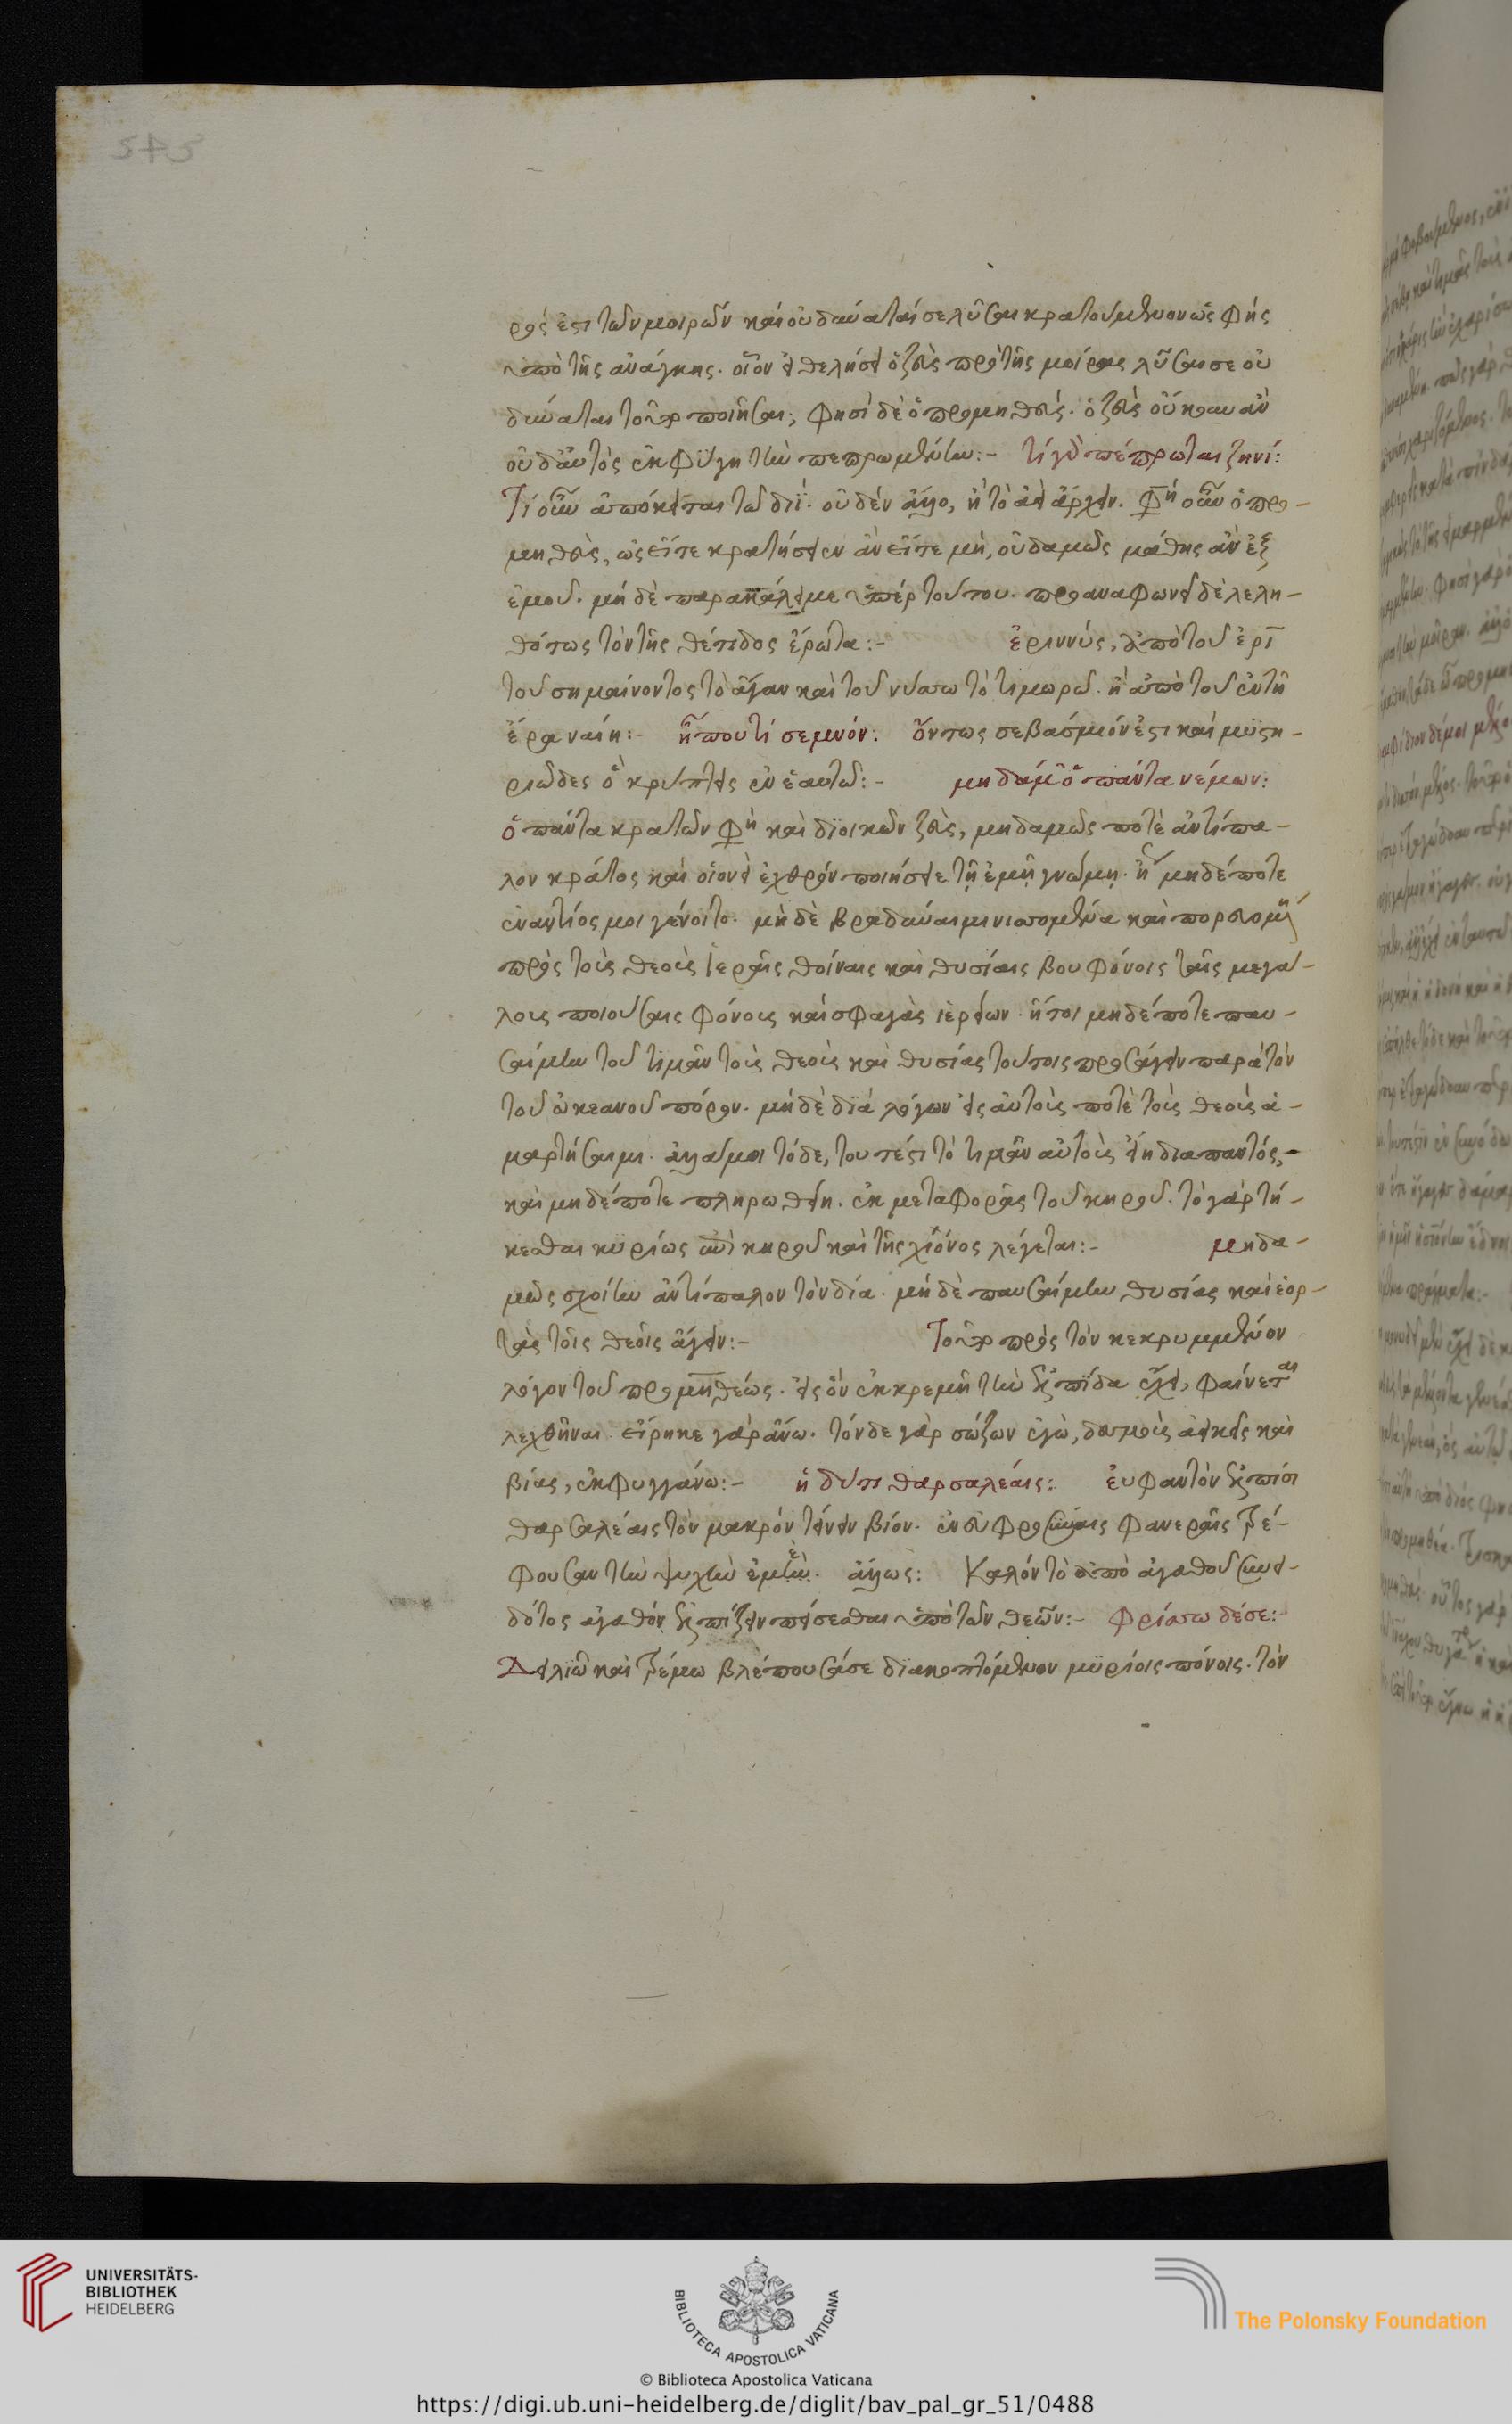 ρός ἐστι τῶν μοιρῶν καὶ οὐ δύναταί σε λῦσαι κρατούμενον ὡς φής
ὑπὸ τῆς ἀνάγκης. οἷον εἰ θελήσει ὁ ζεὺς πρὸ τῆς μοίρας λῦσαι σε οὐ
δύναται τοῦτο ποιῆσαι; φησὶ δὲ ὁ προμηθεύς. ὁ ζεὺς οὔκουν ἂν
οὐδ' αὐτὸς ἐκφύγη τὴν πεπρωμένην:- τί γὰρ πέπρωται ζηνί:
Τί οὖν ἀπόκειται τῷ διΐ. οὐδὲν ἄλλο, ἢ τὸ ἀεὶ ἄρχειν. φη οὖν ὁ προ-
μηθεὺς, ὡς εἴτε κρατήσειεν ἂν εἴτε μὴ, οὐδαμῶς μάθης ἂν ἐξ
ἐμοῦ. μὴ δὲ παρακάλει με ὑπὲρ τούτου. προαναφωνεῖ δὲ λελη-
θότως τὸν τῆς θέτιδος ἔρωτα:- ἐριννύς, ἀπὸ τοῦ ἐρι
τοῦ σημαίνοντος τὸ ἄγαν καὶ τοῦ νύσσω τὸ τιμωρῶ. ἢ ἀπὸ τοῦ ἐν τῆ
ἔρα ναίη:- ἦ που τί σεμνόν. ὄντως σεβάσμιόν ἐστι καὶ μυστη-
ριῶδες ὃ κρύπτεις ἐν ἑαυτῷ:- μηδάμ' ὁ πάντα νέμων:
ὁ πάντα κρατῶν φη καὶ διοικῶν ζεὺς, μηδαμῶς ποτὲ ἀντίπα-
λον κράτος καὶ οἱονεὶ ἐχθρὸν ποιήσειε τῇ ἐμῇ γνώμῃ. ἢ μηδέποτε
ἐναντίος μοι γένοιτο. μὴ δὲ βραδύναιμι νισσομένα καὶ πορευομέ
πρὸς τοὺς θεοὺς ἱεραῖς θοίναις καὶ θυσίαις βουφόνοις ταῖς μεγά-
λους ποιούσαις φόνους καὶ σφαγὰς ἱερείων. ἤτοι μηδέποτε παυ-
σαίμην τοῦ τιμᾶν τοὺς θεοὺς καὶ θυσίας τούτοις προσάγειν παρὰ τὸν
τοῦ ὠκεανοῦ πόρον. μὴ δὲ διὰ λόγων εἰς αὐτοὺς ποτὲ τοὺς θεοὺς ἁ-
μαρτήσαιμι. ἀλλά μοι τόδε, τουτέστι τὸ τιμᾶν αὐτοὺς εἴη διαπαντός,-
καὶ μηδέποτε πληρωθείη. ἐκ μεταφορᾶς τοῦ κηροῦ. τὸ γὰρ τή-
κεσθαι κυρίως ἐπὶ κηροῦ καὶ τῆς χιόνος λέγεται:- μηδα-
μῶς σχοίην ἀντίπαλον τὸν δία. μὴ δὲ παυσαίμην θυσίας καὶ ἑορ-
τὰς τοῖς θεοῖς ἄγειν:- Τοῦτο πρὸς τὸν κεκρυμμένον
λόγον τοῦ προμηθέως. εἰς ὃν ἐκκρεμῆ τὴν ἐλπίδα ἔχει, φαίνεται
λεχθῆναι. εἴρηκε γὰρ ἄνω. τόνδε γὰρ σώζων ἐγὼ, δεσμοὺς ἀεικεῖς καὶ
βίας, ἐκφυγγάνω:- ἡδύ τι θαρσαλέαις: εὐφαντὸν ἐλπίσι
θαρσαλέαις τὸν μακρὸν τείνειν βίον. ἐν εὐφροσύναις φανεραῖς τρέ-
φουσαν τὴν ψυχὴν ἐμὴν. ἄλλως: Καλὸν τὸ ἀπὸ ἀγαθοῦ συνει-
δότος ἀγαθὸν ἐλπίζειν πείσεσθαι ὑπὸ τῶν θεῶν:- φρίσσω δέ σε:-
Δειλιῶ καὶ τρέμω βλέπουσά σε διακοπτόμενον μυρίοις πόνοις. τὸν
UNIVERSITÄTS-
BIBLIOTHEK
HEIDELBERG
BIBLIOTECA APOSTOLICA VATICANA
The Polonsky Foundation
© Biblioteca Apostolica Vaticana
https://digi.ub.uni-heidelberg.de/diglit/bav_pal_gr_51/0488